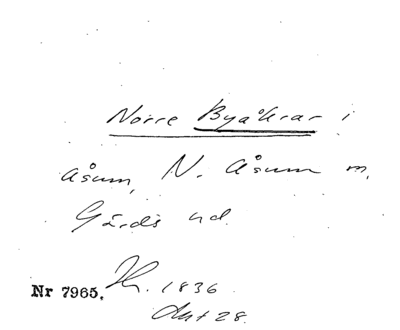 Norre Byåkrar i
Åsum, N. Åsum m.
Gärds hd.
Nr 7965. 1836
Akt 28.